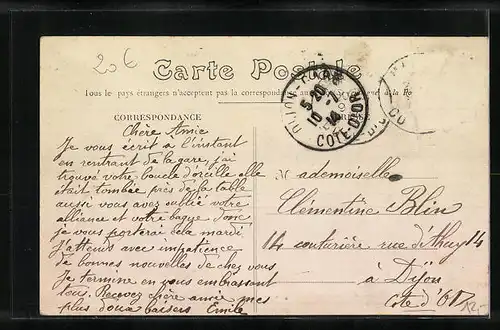 20€
Carte Postale
Tous les pays étrangers n'acceptent pas la correspondance au
CORRESPONDANCE
Chère Amie
Je vous écrit à l'instant
en rentrant de la gare, j'ai
trouvé votre boucle d'oreille elle
était tombée près de la table
aussi vous avez oublié votre
alliance et votre bague donc
je vous porterai cela mardi
J'attends avec impatience
de bonnes nouvelles de chez vous
Je termine en vous embrassant
tous. Recevez chère amie mes
plus doux baisers Emile
DIJON-GARE
5 20
10 -7
14
COTE D'OR
Mademoiselle
Clémentine Blin
14 couturière rue d'Ahuy 14
à Dijon
Côte d'Or